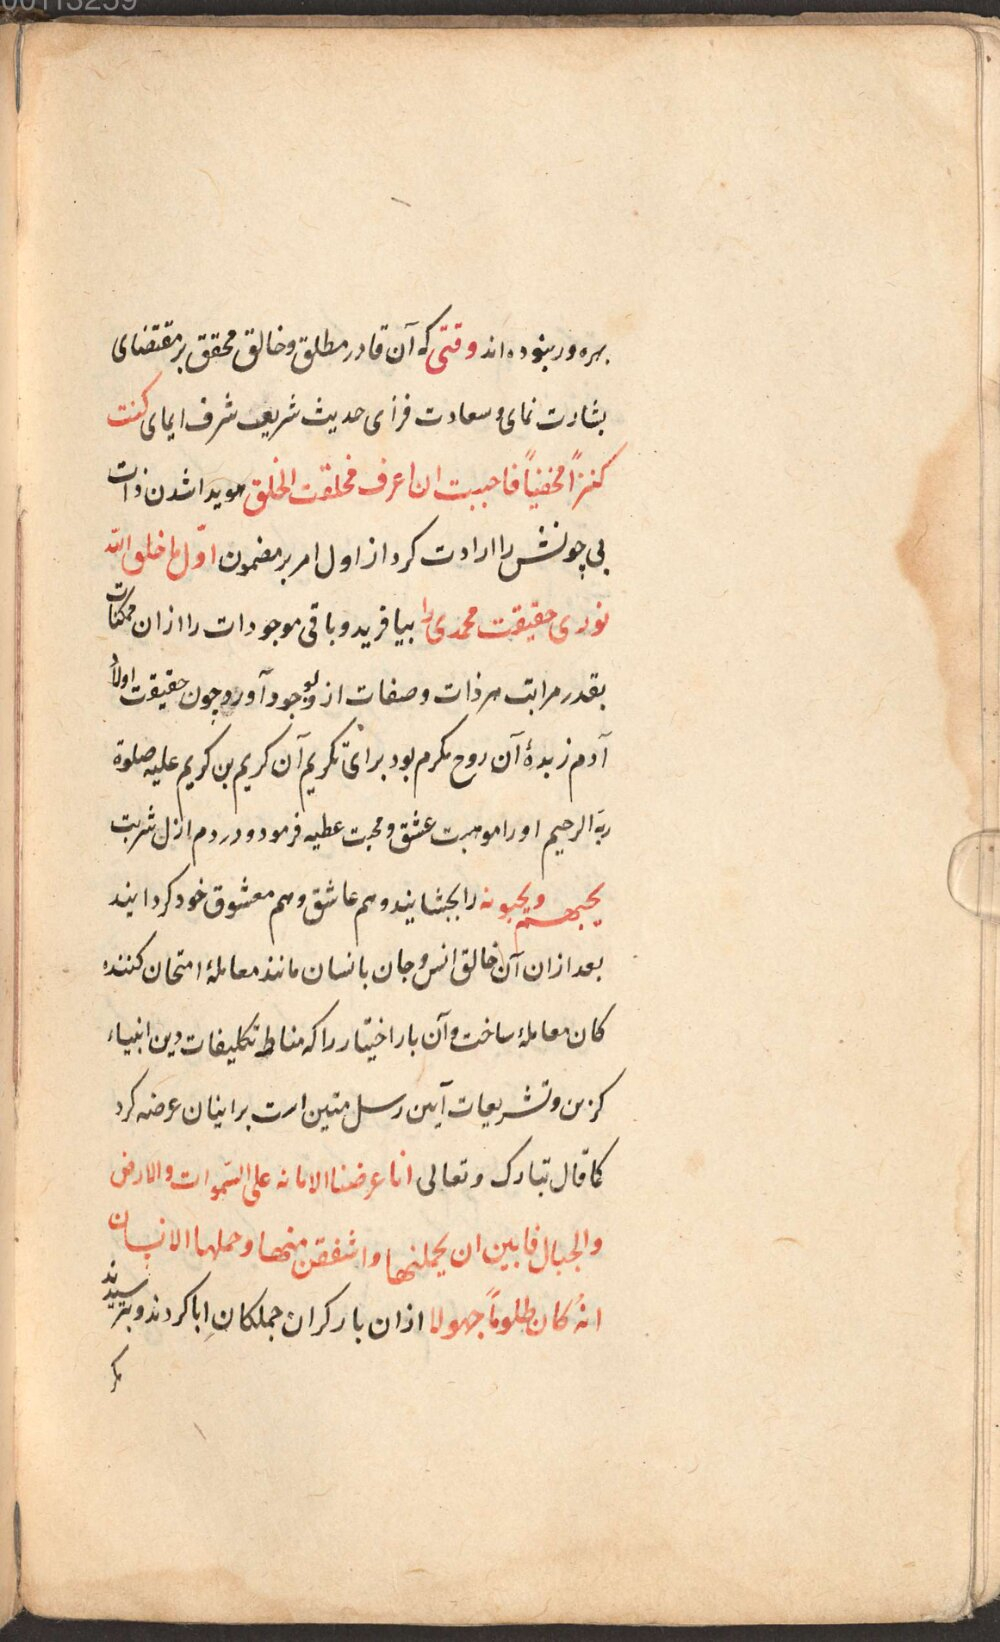 00113259
بهره ور بنوده اند وقتی که آن قادر مطلق و خالق محقق بر مقتضای
بشارت نمای و سعادت فزای حدیث شریف شرف ایمای کنت
کنزاً مخفیاً فاحببت ان اعرف فخلقت الخلق هویدا شدن ذات
بی چونش را ارادت کرد از اول امر بر مضمون اوّل ما خلق اللّه
نوری حقیقت محمدی را بیافرید و باقی موجودات را از ان ممکنات
بقدر مراتب هر ذات و صفات از وی بوجود آورد و چون حقیقت اولاد
آدم زبدهٔ آن روح مکرم بود برای تکریم آن کریم بن کریم علیه صلوة
ربّه الرحیم او را موهبت عشق و محبت عطیه فرمود و در دم ازل شربت
یحبهم ویحبونه را بخشایند و هم عاشق و هم معشوق خود کردایند
بعد از ان آن خالق انس و جان بانسان مانند معاملهٔ امتحان کننده
کان معامله ساخت و آن بار اختیار را که مناط تکلیفات دین انبیاء
کزین و تشریعات آیین رسل متین است بر اینان عرضه کرد
کما قال تبارک و تعالی انا عرضنا الامانه علی السّموات والارض
والجبال فابین ان یحملنها واشفقن منها وحملها الانسان
انهُ کان ظلوماً جهولا از ان بار کران جملکان اِبا کردند و بترسیدند
مکر